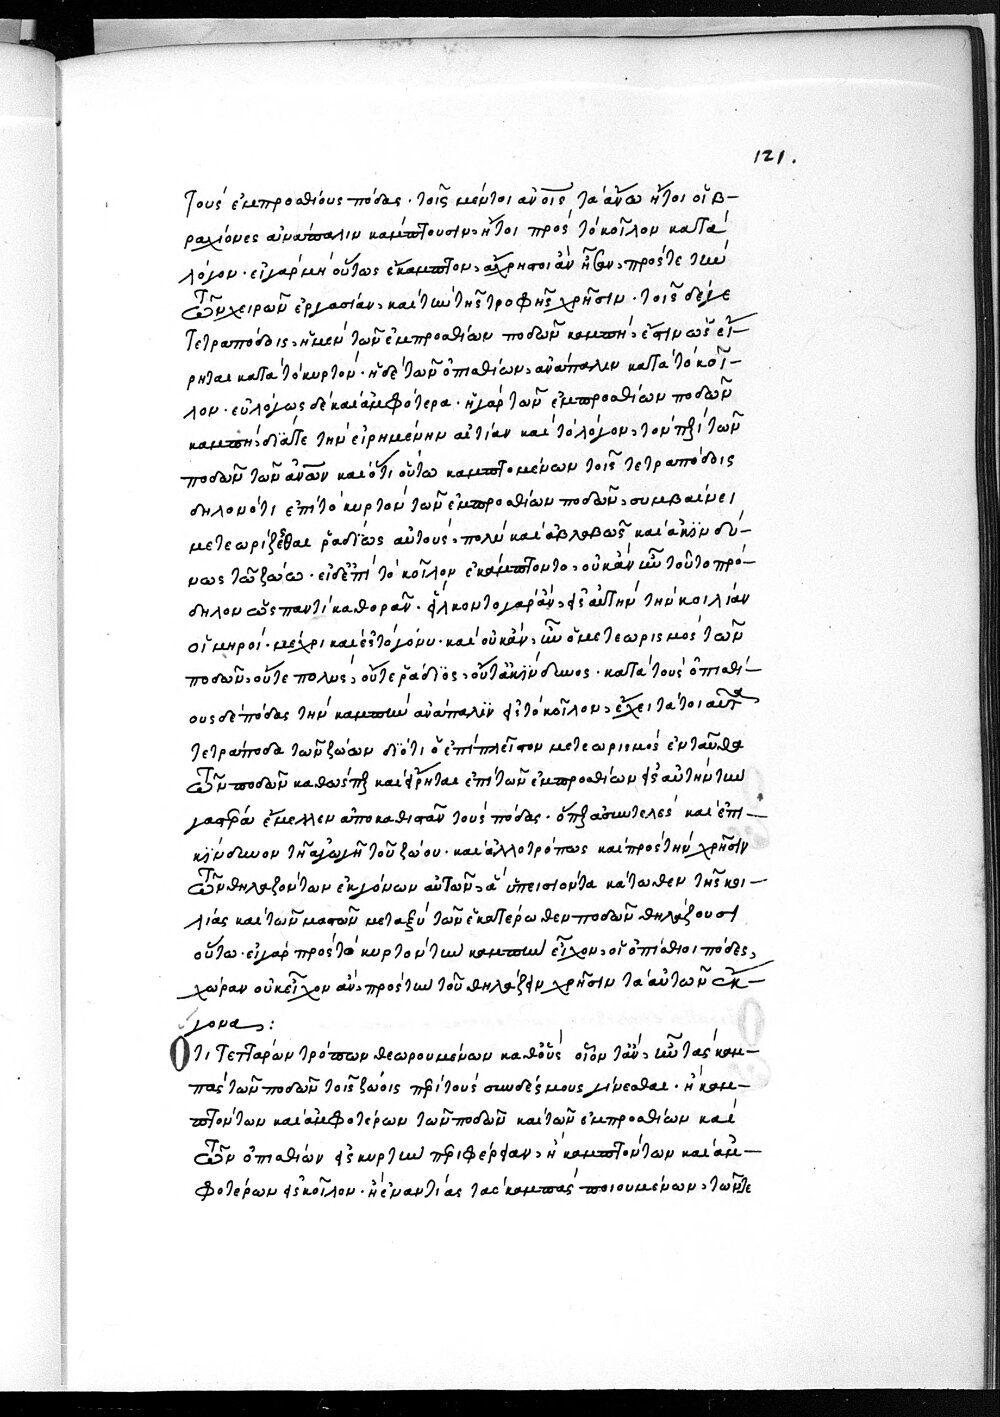 121.
τοὺς ἐμπροσθίους πόδας · τοῖς μέντοι ἀνοις τὰ ἄνω ἤτοι οἱ β-
ραχίονες ἀνάπαλιν κάμπτουσιν, ἤτοι πρὸς τὸ κοῖλον κατὰ
λόγον · εἰ γὰρ μὴ οὕτως ἔκαμπτον, ἄχρηστοι ἂν ἦσαν, πρός τε τὴν
τῶν χειρῶν ἐργασίαν, καὶ τὴν τῆς τροφῆς χρῆσιν · τοῖς δέ γε
τετραπόδοις, ἡ μὲν τῶν ἐμπροσθίων ποδῶν καμπὴ, ἔστιν ὡς εἴ-
ρηται κατὰ τὸ κυρτόν · ἡ δὲ τῶν ὀπισθίων, ἀνάπαλιν κατὰ τὸ κοῖ-
λον · εὐλόγως δὲ καὶ ἀμφότερα · ἡ γὰρ τῶν ἐμπροσθίων ποδῶν
καμπὴ, διά τε τὴν εἰρημένην αἰτίαν καὶ τὸ λόγον, τὸν περὶ τῶν
ποδῶν τῶν ἀνων καὶ ὅτι οὕτω καμπτομένων τοῖς τετραπόδοις
δηλονότι ἐπὶ τὸ κυρτὸν τῶν ἐμπροσθίων ποδῶν, συμβαίνει
μετεωρίζεσθαι ῥαδίως αὐτοὺς, πολὺ καὶ ἀβλαβῶς καὶ ἀκινδύ-
νως τῷ ζώῳ · εἰ δὲ ἐπὶ τὸ κοῖλον ἐκάμπτοντο, οὐκ ἂν ἦν τοῦτο πρό-
δηλον ὡς παντὶ καθορᾶν · εἵλκοντο γὰρ ἂν, εἰς αὐτὴν τὴν κοιλίαν
οἱ μηροὶ · μέχρι καὶ ἐς τὸ γόνυ · καὶ οὐκ ἂν, ἦν ὁ μετεωρισμὸς τῶν
ποδῶν, οὔτε πολὺς, οὔτε ῥάδιος, οὔτ' ἀκίνδυνος · κατὰ τοὺς ὀπισθί-
ους δὲ πόδας τὴν καμπὴν ἀνάπαλιν εἰς τὸ κοῖλον, ἔχει τὰ τοιαῦτα
τετράποδα τῶν ζώων διότι ὁ ἐπίπλεῖστον μετεωρισμὸς ἐνταῦθα
τῶν ποδῶν καθώσπερ καὶ εἴρηται ἐπὶ τῶν ἐμπροσθίων εἰς αὐτὴν τὴν
γαστέρα ἔμελλεν ἀποκαθιστᾶν τοὺς πόδας · ὅπερ ἀσυντελὲς καὶ ἐπι-
κίνδυνον τῇ ἀγωγῇ τοῦ ζώου · καὶ ἀλλοτρόπως καὶ πρὸς τὴν χρῆσιν
τῶν θηλαζόντων ἐκγόνων αὐτῶν, ἃ ὑπεισιόντα κάτωθεν τῆς κοι-
λίας καὶ τῶν μαστῶν μεταξὺ τῶν ἑκατέρωθεν ποδῶν θηλάζουσι
οὕτω · εἰ γὰρ πρὸς τὸ κυρτὸν τὴν καμπὴν εἶχον, οἱ ὀπίσθιοι πόδες,
χώραν οὐκ εἶχον ἂν, πρὸς τὴν τοῦ θηλάζειν χρῆσιν τὰ αὐτῶν ἔκ-
γονα :
Ὅτι τεττάρων τρόπων θεωρουμένων καθ' οὓς οἷόν τ' ἂν, ἦν τὰς καμ-
πὰς τῶν ποδῶν τοῖς ζώοις περὶ τοὺς συνδέσμους γίνεσθαι · ἢ καμ-
πτόντων καὶ ἀμφοτέρων τῶν ποδῶν καὶ τῶν ἐμπροσθίων καὶ
τῶν ὀπισθίων εἰς κυρτὴν περιφέρειαν, ἢ καμπτόντων καὶ ἀμ-
φοτέρων εἰς κοῖλον · ἢ ἐναντίας τὰς καμπὰς ποιουμένων, τῶν τε